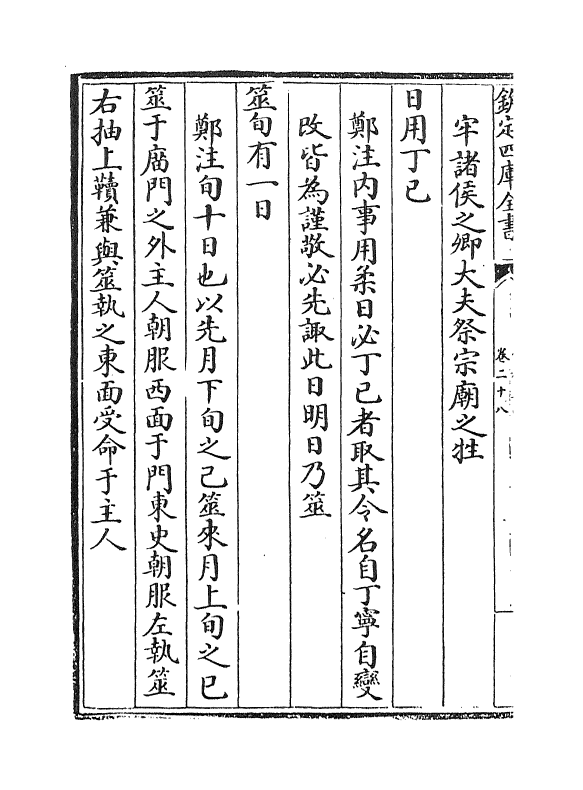 欽定四庫全書
卷二十八
牢諸侯之卿大夫祭宗廟之牲
日用丁己
鄭注内事用柔日必丁己者取其令名自丁寧自變
改皆為謹敬必先諏此日明日乃筮
筮旬有一日
鄭注旬十日也以先月下旬之己筮來月上旬之己
筮于廟門之外主人朝服西面于門東史朝服左執筮
右抽上韇兼與筮執之東面受命于主人